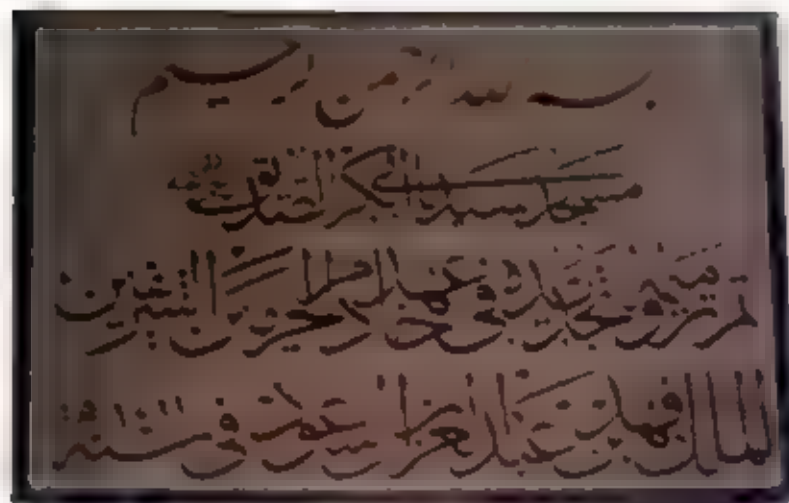 بسم الله الرحمن الرحيم
مسجد سيدنا ابي بكر الصديق
تم ترميمه وتجديده في عهد خادم الحرمين الشريفين
الملك فهد بن عبدالعزيز ال سعود في سنة